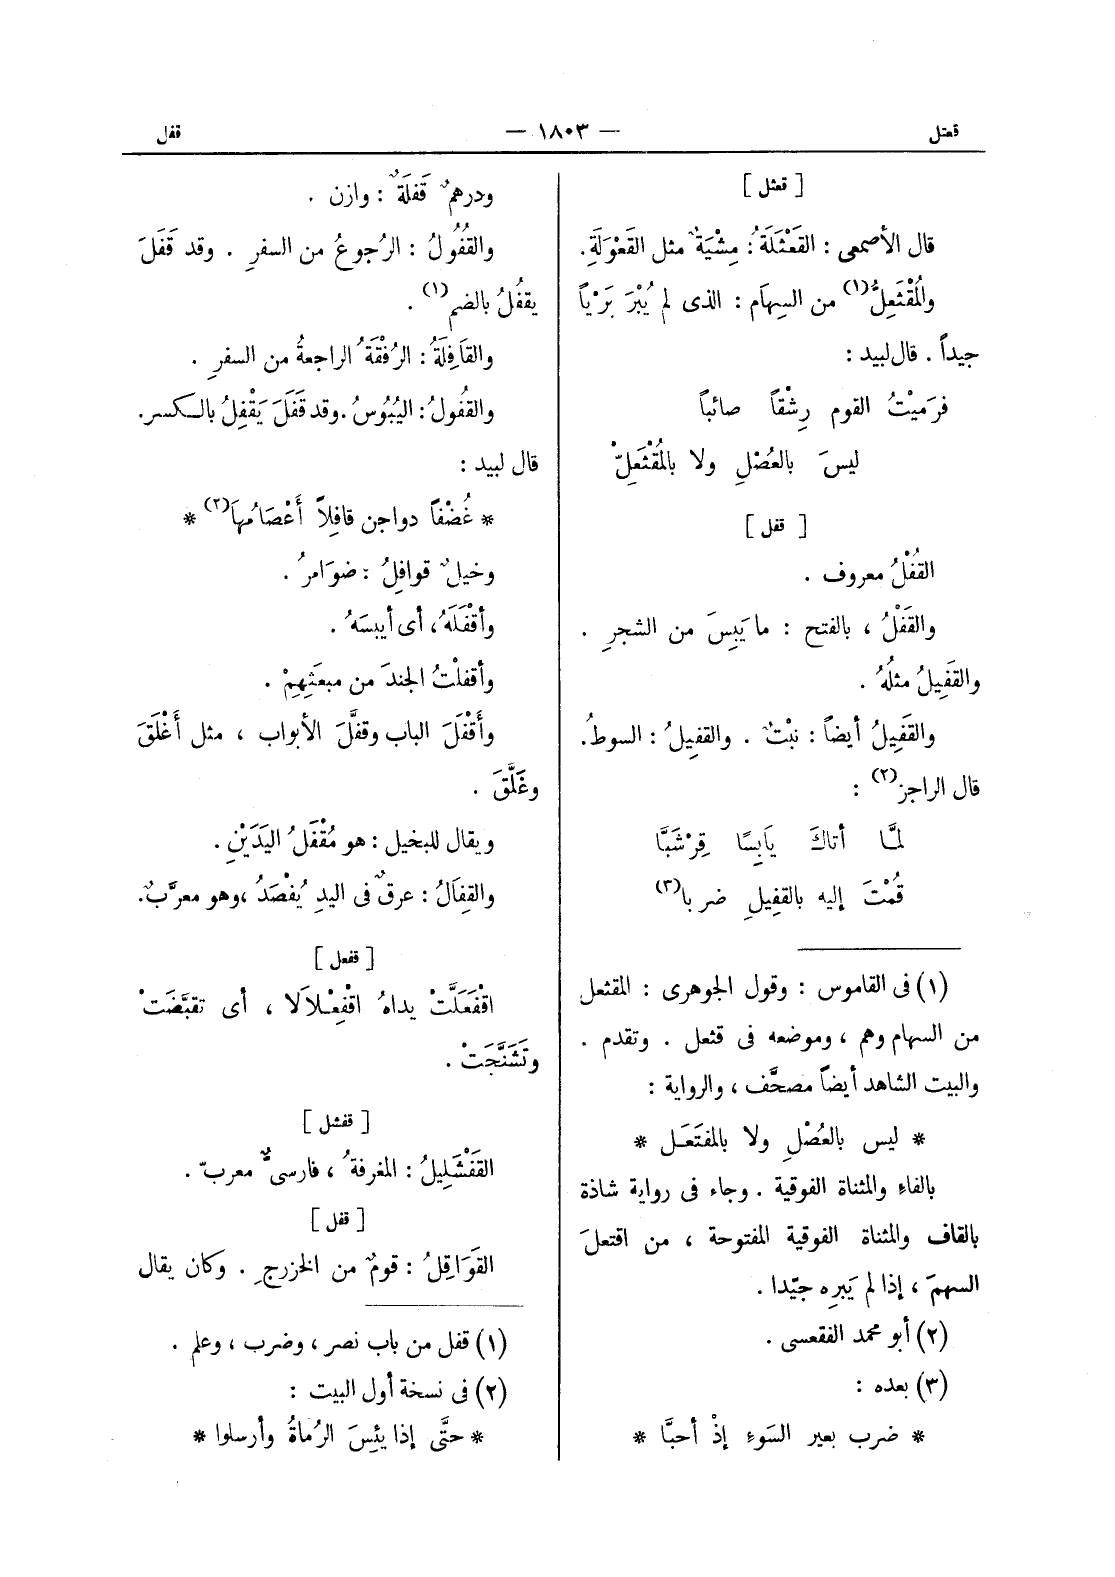 قعثل — ١٨٠٣ — قفل
[ قعثل ]
قال الأصمعى : القَعْثَلَةُ : مِشْيَةٌ مثل القَعْوَلَةِ .
والمُقْثَعِلُّ(١) من السِهَامِ : الذى لم يُبْرَ بَرْياً
جيداً . قال لبيد :
فرَميْتُ القوم رِشْقاً صائباً
ليسَ بالعُصْلِ ولا بالمُقْثَعِلّْ
[ قفل ]
القُفْلُ معروف .
والقَفْلُ ، بالفتح : ما يَبِسَ من الشجرِ .
والقَفِيلُ مثلُهُ .
والقَفِيلُ أيضاً : نبْتٌ . والقفِيلُ : السوطُ .
قال الراجز(٢) :
لمَّا أتاكَ يَابِسًا قِرْشَبَّا
قُمْتَ إليه بالقفِيلِ ضربا(٣)
(١) فى القاموس : وقول الجوهرى : المقثعل
من السهام وهم ، وموضعه فى قثعل . وتقدم .
والبيت الشاهد أيضاً مصحَّف ، والرواية :
* ليس بالعُصْلِ ولا بالمفتَعَل *
بالفاءِ والمثناة الفوقية . وجاء فى رواية شاذة
بالقاف والمثناة الفوقية المفتوحة ، من اقتعلَ
السهمَ ، إذا لم يَبرِه جيّدا .
(٢) أبو محمد الفقعسى .
(٣) بعده :
* ضرب بعير السَوءِ إذْ أحبَّا *
ودرهمٌ قَفلَةٌ : وازن .
والقُفُولُ : الرُجوعُ من السفرِ . وقد قَفَلَ
يقفُلُ بالضم(١) .
والقَافِلَةُ : الرُفْقَةُ الراجعةُ من السفرِ .
والقُفُولُ : اليُبُوسُ . وقد قَفَلَ يَقْفِلُ بالكسر .
قال لبيد :
* غُضْفاً دواجن قافِلاً أَعْصَامُهَا(٢) *
وخيلٌ قوافِلُ : ضوَامرُ .
وأقْفَلَهُ ، أى أيبسَهُ .
وأقفلْتُ الجندَ من مبعَثِهِمْ .
وأَقْفَلَ الباب وقفَّلَ الأبواب ، مثل أَغْلَقَ
وغَلَّقَ .
ويقال للبخيل : هو مُقْفَلُ اليَدَيْنِ .
والقِفَالُ : عرقٌ فى اليدِ يُفْصَدُ ، وهو معرَّبٌ .
[ قفعل ]
اقْفَعَلَّتْ يداهُ اقْفِعْلَالَا ، أى تقبَّضَتْ
وتَشَنَّجَتْ .
[ قفشل ]
القَفْشَلِيلُ : المغرفةُ ، فارسىٌّ معربّ .
[ قفل ]
القَوَاقِلُ : قومٌ من الخزرجِ . وكان يقال
(١) قفل من باب نصر ، وضرب ، وعلم .
(٢) فى نسخة أول البيت :
* حتَّى إذا يئِسَ الرُماةُ وأرسلوا *